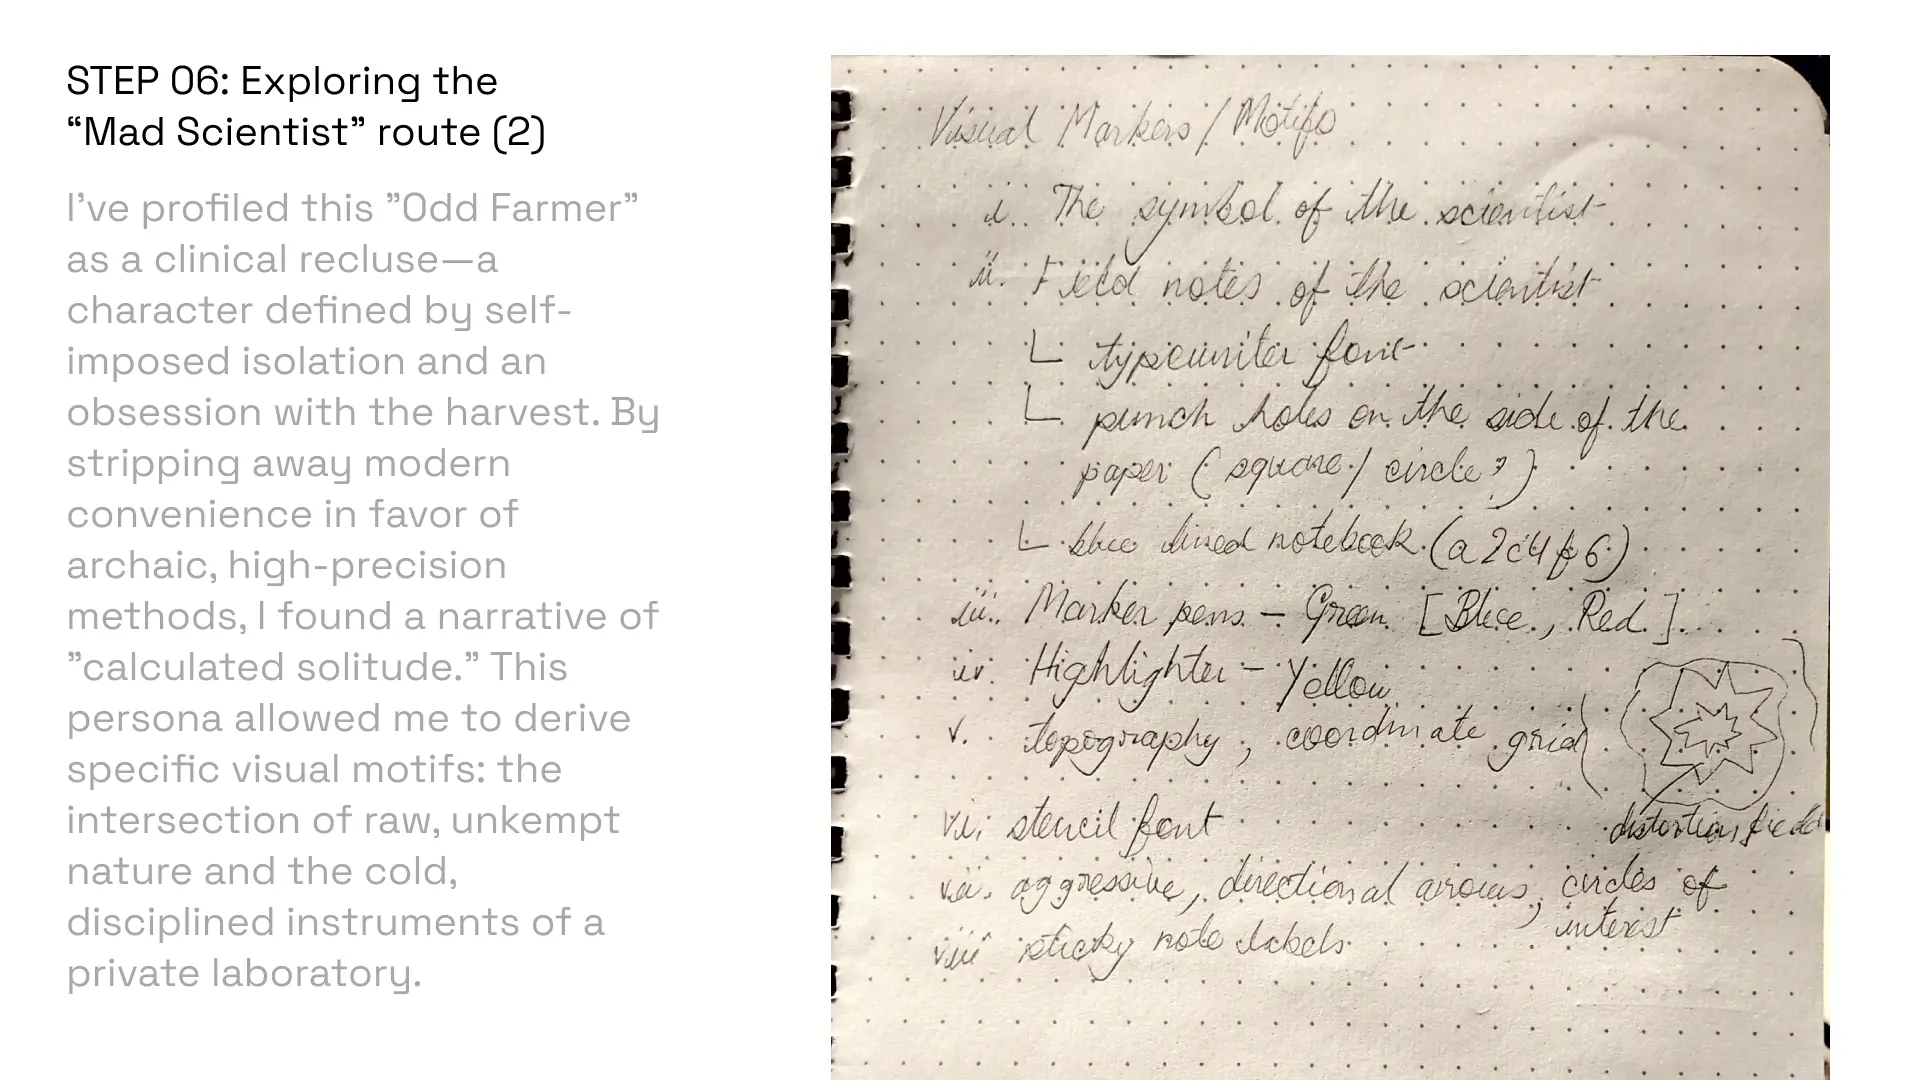 STEP 06: Exploring the
“Mad Scientist” route (2)
I’ve profiled this ”Odd Farmer”
as a clinical recluse—a
character defined by self-
imposed isolation and an
obsession with the harvest. By
stripping away modern
convenience in favor of
archaic, high-precision
methods, I found a narrative of
”calculated solitude.” This
persona allowed me to derive
specific visual motifs: the
intersection of raw, unkempt
nature and the cold,
disciplined instruments of a
private laboratory.
Visual Markers / Motifs
i. The symbol of the scientist
ii. Field notes of the scientist
typewriter font
punch holes on the side of the
paper (square / circle?)
blue lined notebook (a2c4f6)
iii. Marker pens – Green [Blue, Red]
iv. Highlighter – Yellow
v. topography, coordinate grid
distortion field
vi. stencil font
vii. aggressive, directional arrows, circles of
interest
viii sticky note labels